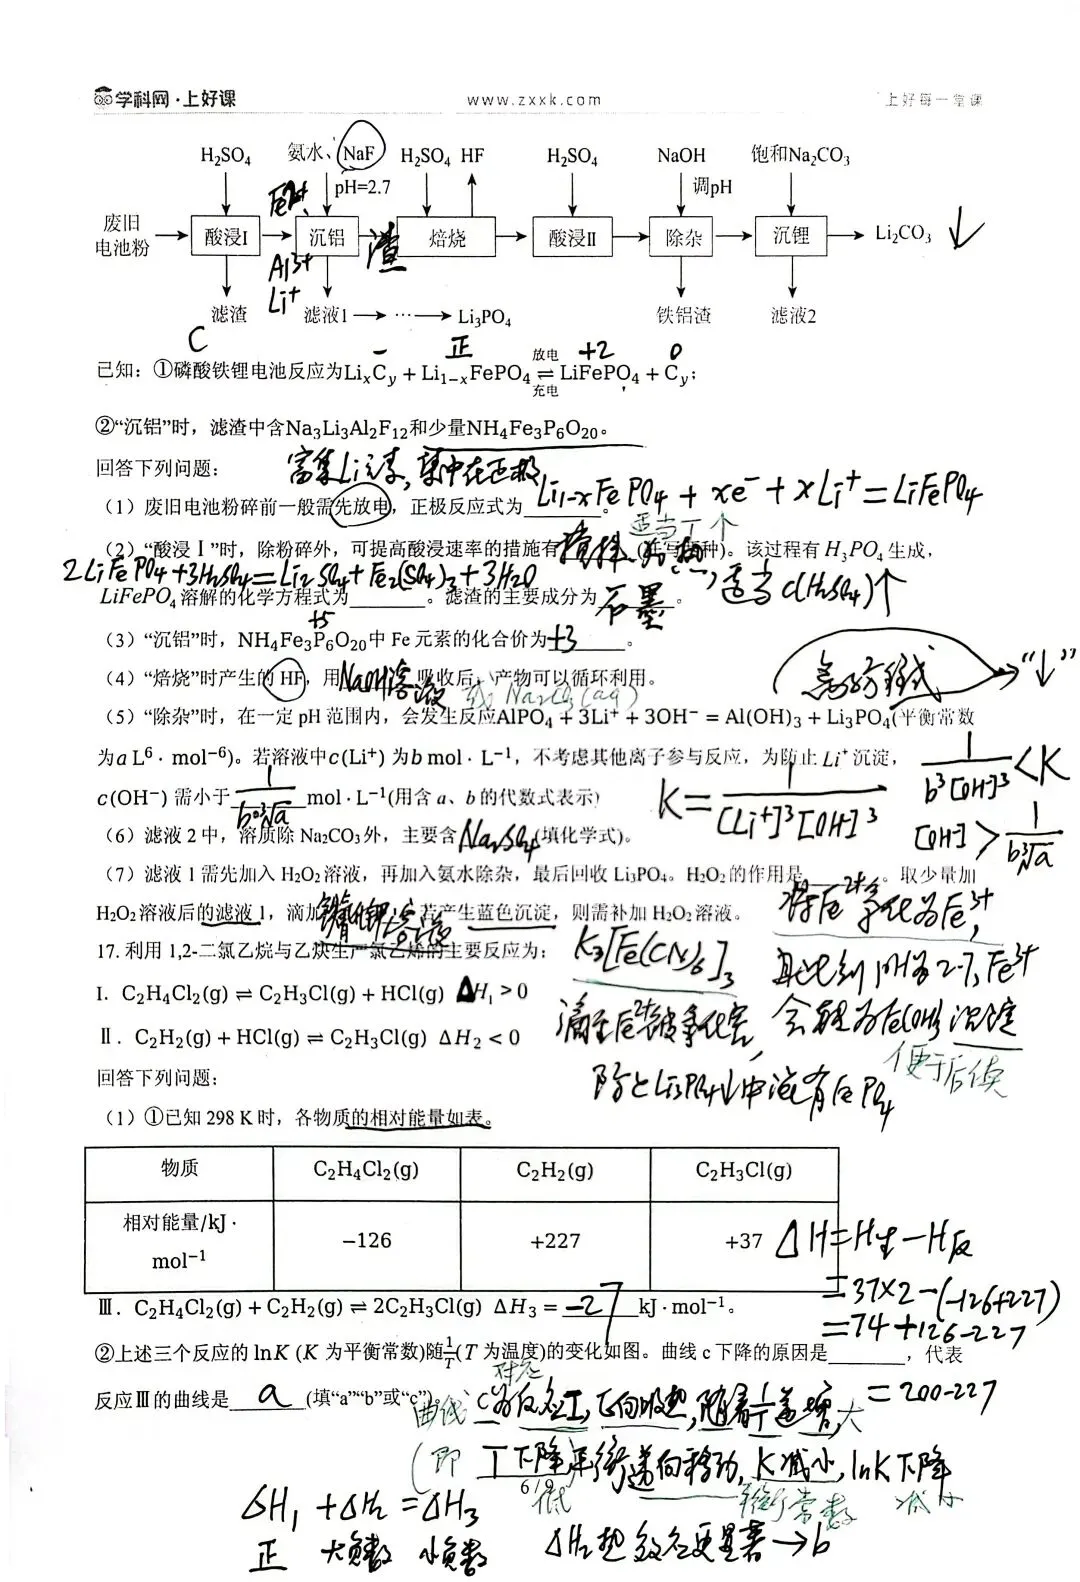 学科网·上好课 www.zxxk.com 上好每一堂课
H₂SO₄ 氨水、NaF H₂SO₄ HF H₂SO₄ NaOH 饱和Na₂CO₃
Fe²⁺ pH=2.7 调pH
废旧电池粉 酸浸Ⅰ 沉铝 渣 焙烧 酸浸Ⅱ 除杂 沉锂 Li₂CO₃ ↓
Al³⁺
Li⁺
滤渣 滤液1 ⋯ Li₃PO₄ 铁铝渣 滤液2
C
− 正 +2 0
已知：①磷酸铁锂电池反应为LiₓC_y + Li₁₋ₓFePO₄ ⇌ LiFePO₄ + C_y；
放电
充电
②“沉铝”时，滤渣中含Na₃Li₃Al₂F₁₂和少量NH₄Fe₃P₆O₂₀。
回答下列问题：
富集Li元素，集中在正极
（1）废旧电池粉碎前一般需先放电，正极反应式为 Li₁₋ₓFePO₄ + xe⁻ + xLi⁺ = LiFePO₄ 。
（2）“酸浸Ⅰ”时，除粉碎外，可提高酸浸速率的措施有 搅拌、加热 (任写两种)。该过程有 H₃PO₄ 生成，
适当c(H₂SO₄)↑
2LiFePO₄+3H₂SO₄=Li₂SO₄+Fe₂(SO₄)₃+3H₂O
LiFePO₄ 溶解的化学方程式为 。滤渣的主要成分为 石墨 。
+5
（3）“沉铝”时，NH₄Fe₃P₆O₂₀中 Fe 元素的化合价为 +3 。
（4）“焙烧”时产生的 HF，用 NaOH溶液 吸收后，产物可以循环利用。
或 Na₂CO₃(aq)
离子方程式 “↓”
（5）“除杂”时，在一定 pH 范围内，会发生反应AlPO₄ + 3Li⁺ + 3OH⁻ = Al(OH)₃ + Li₃PO₄(平衡常数
为a L⁶ · mol⁻⁶)。若溶液中c(Li⁺) 为b mol · L⁻¹，不考虑其他离子参与反应，为防止 Li⁺ 沉淀，
c(OH⁻) 需小于 1/(b·³√a) mol · L⁻¹(用含 a、b 的代数式表示)
K= 1/([Li⁺]³[OH⁻]³)
1/(b³[OH⁻]³) < K
[OH⁻] > 1/(b³√a)
（6）滤液 2 中，溶质除 Na₂CO₃外，主要含 Na₂SO₄ (填化学式)。
（7）滤液 1 需先加入 H₂O₂ 溶液，再加入氨水除杂，最后回收 Li₃PO₄。H₂O₂ 的作用是 。取少量加
将Fe²⁺氧化为Fe³⁺，
H₂O₂ 溶液后的滤液 1，滴加 铁氰化钾溶液 若产生蓝色沉淀，则需补加 H₂O₂ 溶液。
K₃[Fe(CN)₆]
17. 利用 1,2-二氯乙烷与乙炔生产氯乙烯的主要反应为：
Fe³⁺
Ⅰ．C₂H₄Cl₂(g) ⇌ C₂H₃Cl(g) + HCl(g) ΔH₁ > 0
会转为Fe(OH)₃沉淀
Ⅱ．C₂H₂(g) + HCl(g) ⇌ C₂H₃Cl(g) ΔH₂ < 0
便于后续
回答下列问题：
（1）①已知 298 K 时，各物质的相对能量如表。
物质 C₂H₄Cl₂(g) C₂H₂(g) C₂H₃Cl(g)
相对能量/kJ · mol⁻¹ −126 +227 +37
ΔH=H生−H反
=37×2−(−126+227)
=74+126−227
=200−227
Ⅲ．C₂H₄Cl₂(g) + C₂H₂(g) ⇌ 2C₂H₃Cl(g) ΔH₃ = −27 kJ · mol⁻¹。
②上述三个反应的 lnK (K 为平衡常数)随1/T(T 为温度)的变化如图。曲线 c 下降的原因是 ，代表
反应Ⅲ的曲线是 a (填“a”“b”或“c”)。
曲线 c对应为反应Ⅰ，正向吸热，随着1/T 增大
(即 T下降 平衡逆向移动，K减小，lnK下降
6/9
低 平衡常数 减小
ΔH₁ +ΔH₂ =ΔH₃
正 大负数 小负数
ΔH₂热效应更显著→b